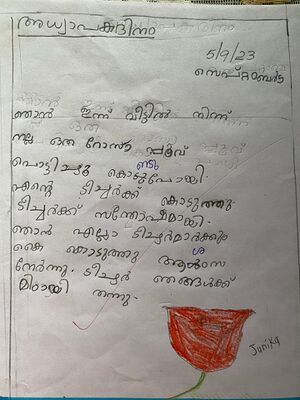 അധ്യാപകദിനം
5/9/23
സെപ്റ്റംബർ 5
ഞാൻ ഇന്ന് വീട്ടിൽ നിന്ന്
നല്ല ഒരു റോസാ പൂവ്
പൊട്ടിച്ചു കൊണ്ടുപോയി.
എന്റെ ടീച്ചർക്ക് കൊടുത്തു.
ടീച്ചർക്ക് സന്തോഷമായി.
ഞാൻ എല്ലാ ടീച്ചർമാർക്കും
കൈ കൊടുത്തു ആശംസ
നേർന്നു. ടീച്ചർ ഞങ്ങൾക്ക്
മിഠായി തന്നു.
Junika